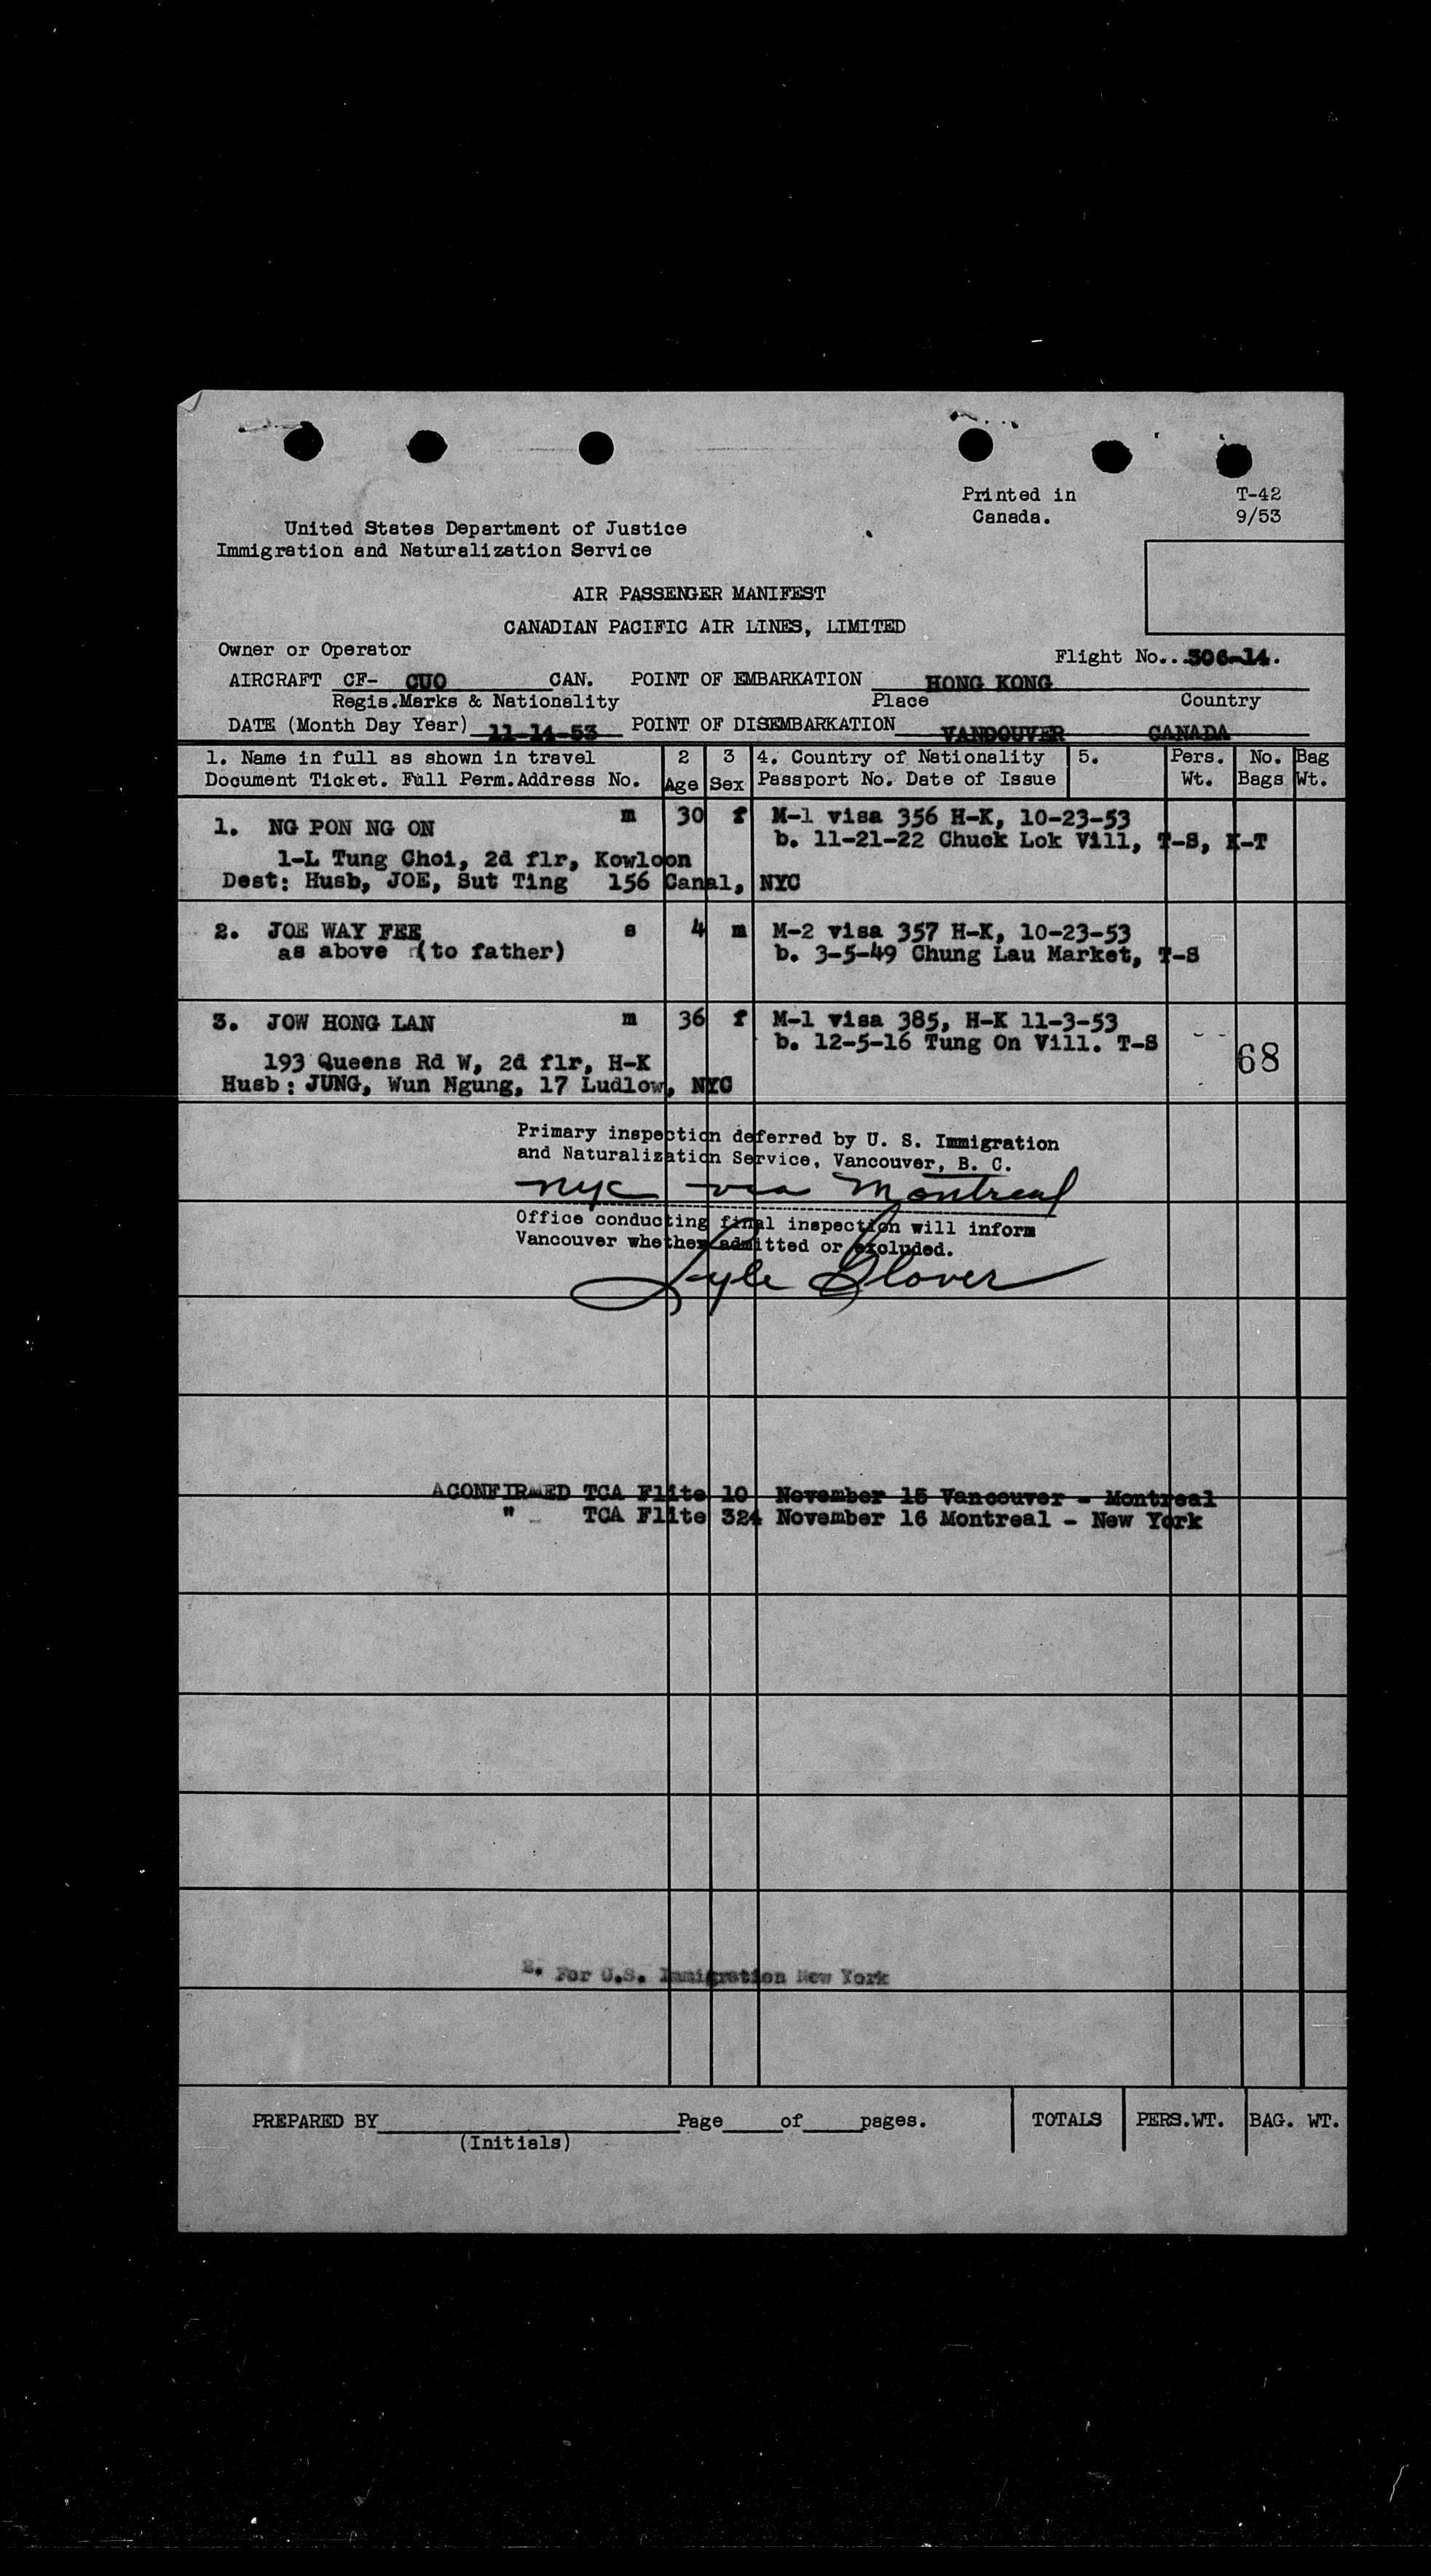 Printed in T-42
Canada. 9/53
United States Department of Justice
Immigration and Naturalization Service
AIR PASSENGER MANIFEST
CANADIAN PACIFIC AIR LINES, LIMITED
Owner or Operator Flight No...306-14.
AIRCRAFT CF- CUO CAN. POINT OF EMBARKATION HONG KONG
Regis.Marks & Nationality Place Country
DATE (Month Day Year) 11-14-53 POINT OF DISEMBARKATION VANDOUVER CANADA
1. Name in full as shown in travel 2 3 4. Country of Nationality 5. Pers. No. Bag
Document Ticket. Full Perm.Address No. Age Sex Passport No. Date of Issue Wt. Bags Wt.
1. NG PON NG ON m 30 f M-1 visa 356 H-K, 10-23-53
b. 11-21-22 Chuck Lok Vill, T-S, K-T
1-L Tung Choi, 2d flr, Kowloon
Dest: Husb, JOE, Sut Ting 156 Canal, NYC
2. JOE WAY FEE s 4 m M-2 visa 357 H-K, 10-23-53
as above (to father) b. 3-5-49 Chung Lau Market, T-S
3. JOW HONG LAN m 36 f M-1 visa 385, H-K 11-3-53
b. 12-5-16 Tung On Vill. T-S
68
193 Queens Rd W, 2d flr, H-K
Husb: JUNG, Wun Ngung, 17 Ludlow, NYC
Primary inspection deferred by U. S. Immigration
and Naturalization Service, Vancouver, B. C.
nyc via Montreal
Office conducting final inspection will inform
Vancouver whether admitted or excluded.
Lyle Glover
ACONFIRMED TCA Flite 10 November 15 Vancouver - Montreal
" TCA Flite 324 November 16 Montreal - New York
2. For U.S. Immigration New York
PREPARED BY Page of pages. TOTALS PERS.WT. BAG. WT.
(Initials)